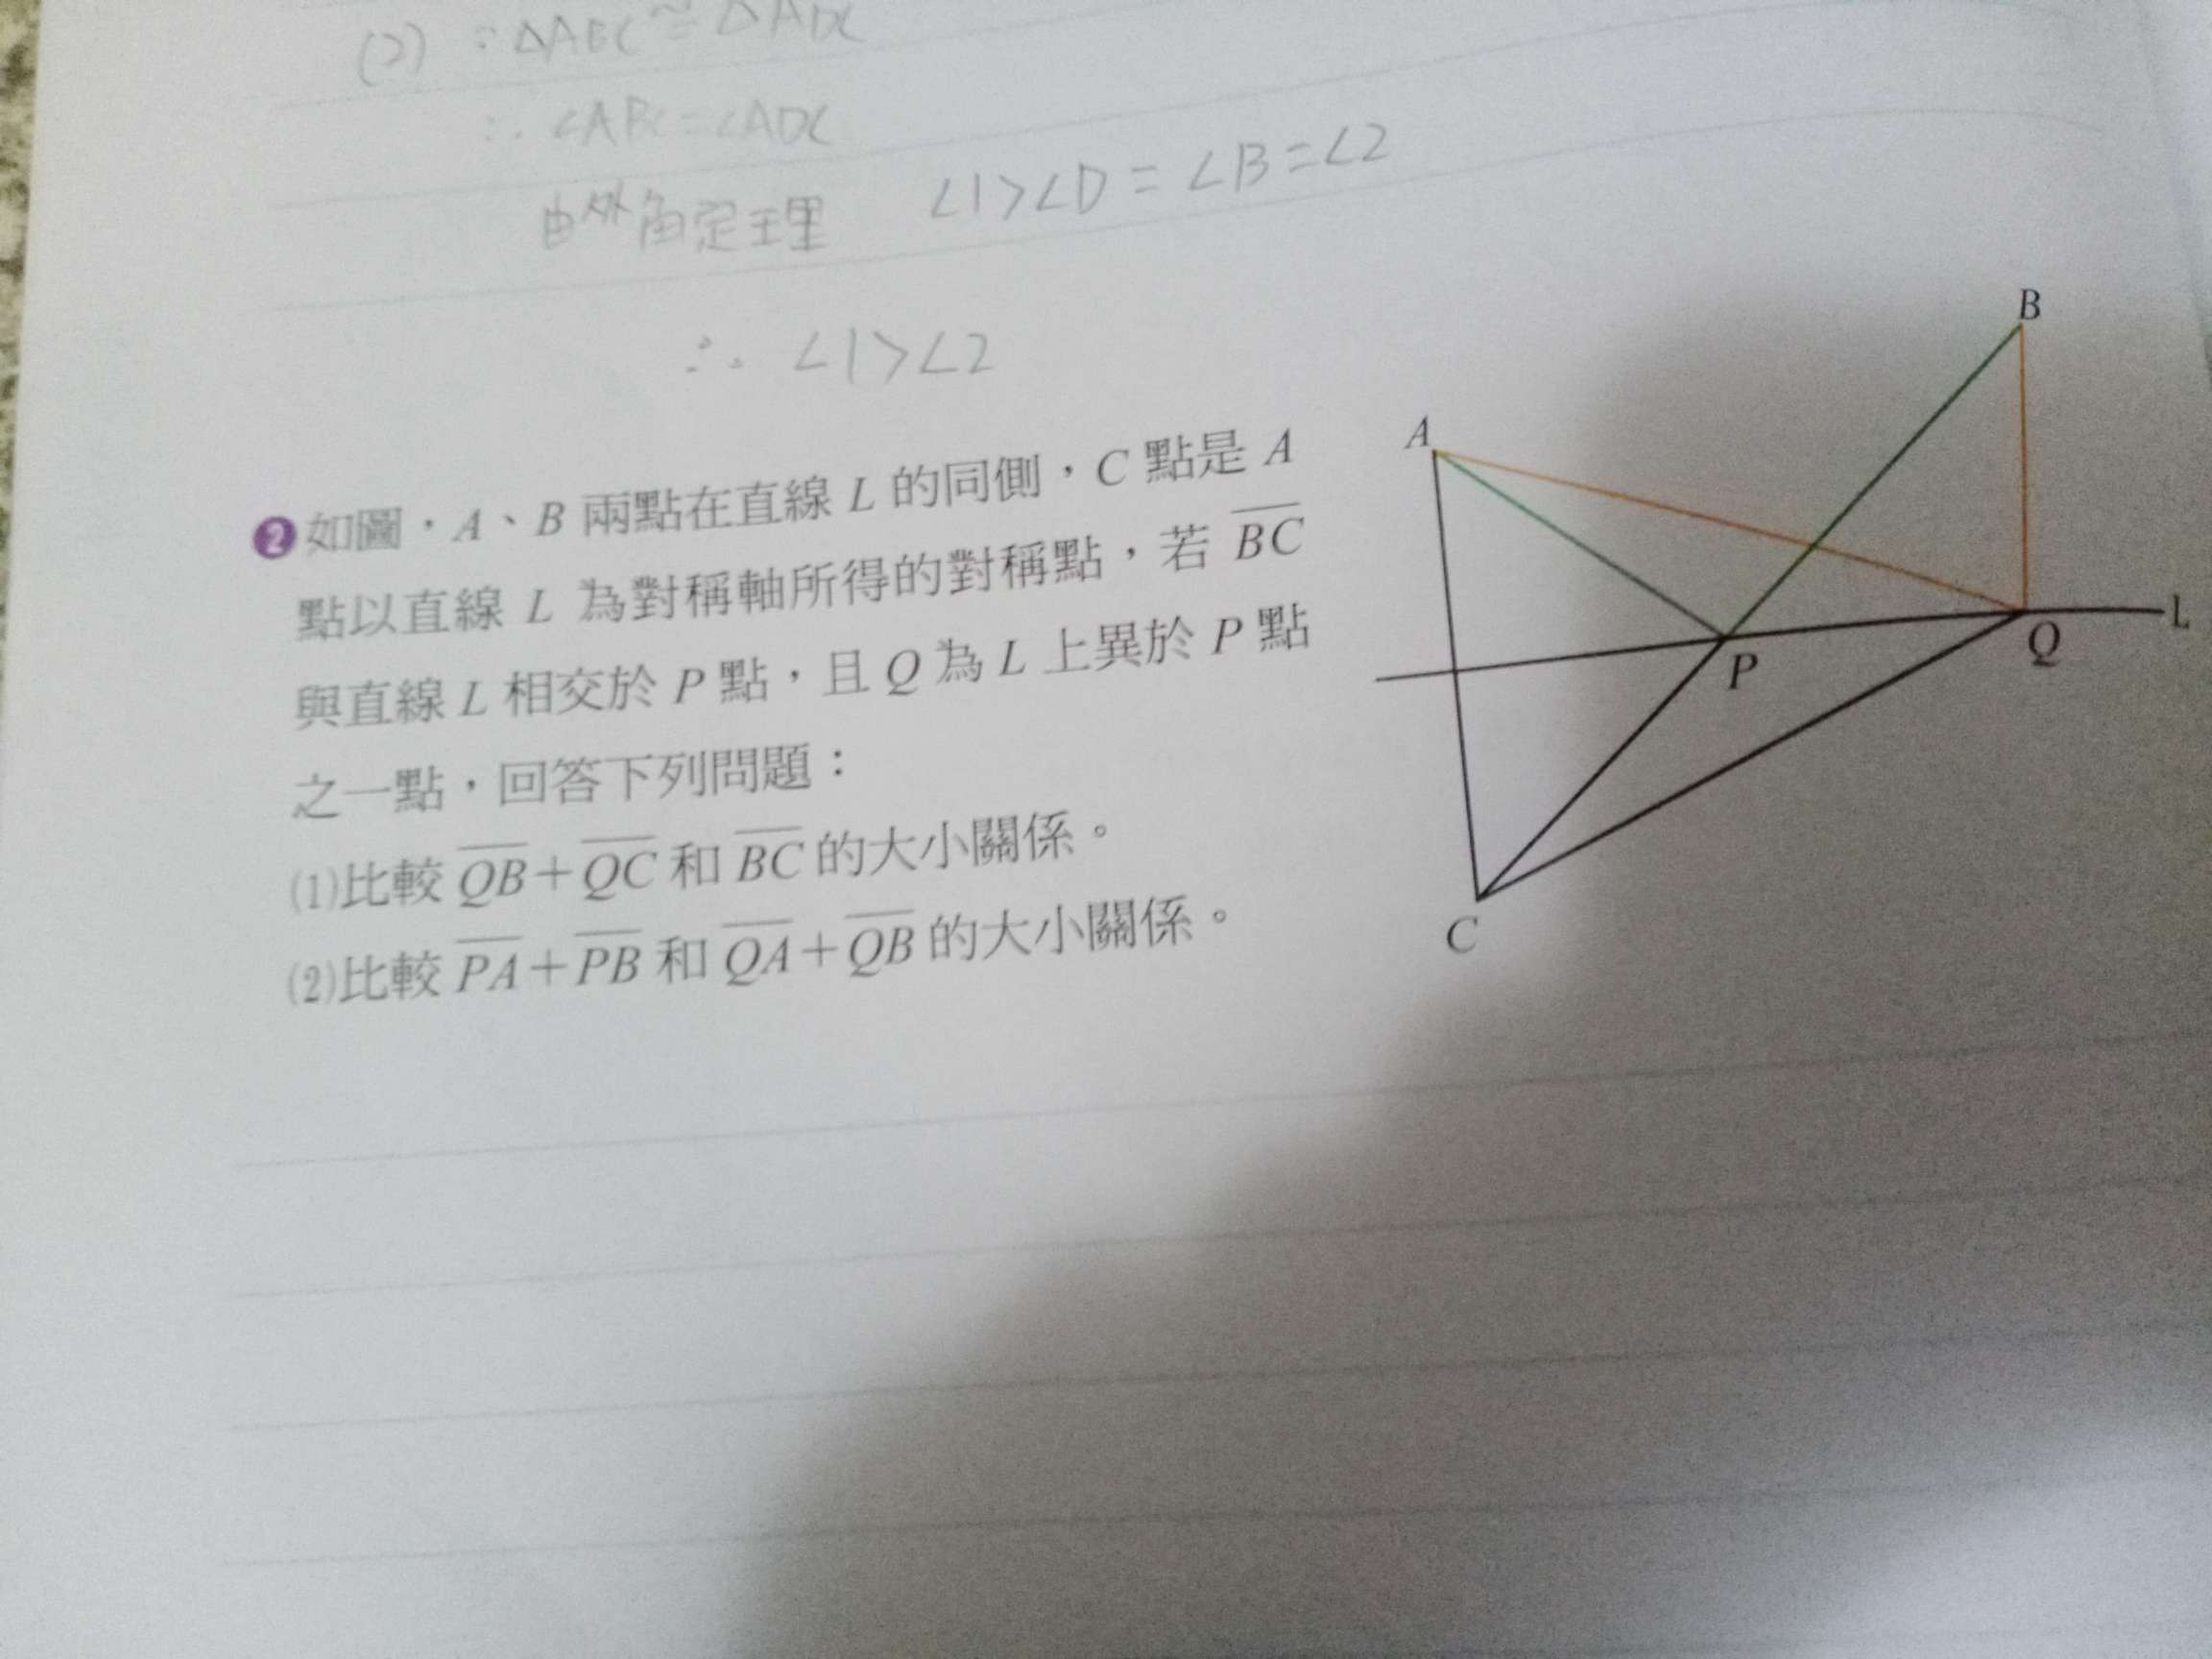 (2) ∵ △ABC ≅ △ADC
∴ ∠ABC = ∠ADC
由外角定理 ∠1 > ∠D = ∠B = ∠2
∴ ∠1 > ∠2
❷如圖，A、B 兩點在直線 L 的同側，C 點是 A
點以直線 L 為對稱軸所得的對稱點，若 BC
與直線 L 相交於 P 點，且 Q 為 L 上異於 P 點
之一點，回答下列問題：
(1)比較 QB＋QC 和 BC 的大小關係。
(2)比較 PA＋PB 和 QA＋QB 的大小關係。
B
A
L
Q
P
C